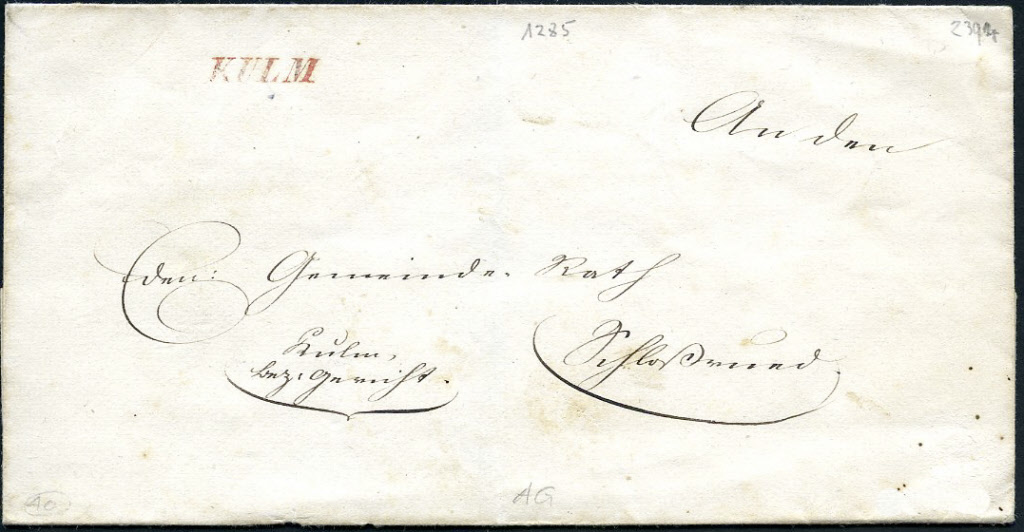 1285
2394
KULM
An den
den: Gemeinde-Rath
Kulm,
bez: Gericht.
Schloßrued.
40
AG